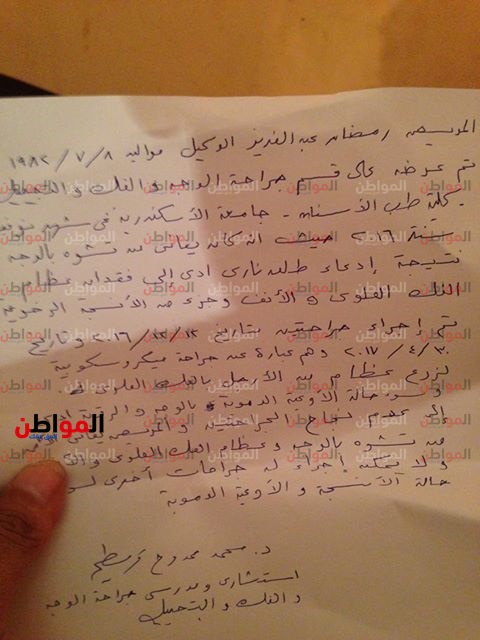 المريض رمضان عبد العزيز الوكيل مواليد ٨ / ٧ / ١٩٨٢
تم عرضه على قسم جراحة الوجه و الفك و التجميل
بكلية طب الأسنان - جامعة الأسكندرية في شهر
سنة ٢٠١٦ حيث انه كان يعانى من تشوه بالوجه
نتيجة إدعاء طلق نارى ادى الى فقدان عظام
الفك العلوى و الأنف وجزء من الأنسجة الرخوة
تم إجراء جراحتين بتاريخ ١٢ / ١٢ / ٢٠١٦ وتاريخ
٣٠ / ٤ / ٢٠١٧ وهم عبارة عن جراحة ميكروسكوبية
لزرع عظام من الأرجل بالفك العلوى
و سوء حالة الأوعية الدموية بالوجه و الرقبة
إلى عدم نجاح الجراحتين و المريض يعانى
من تشوه بالوجه و عظام الفك العلوى
و لا يمكن إجراء له جراحات أخرى
حالة الأنسجة و الأوعية الدموية
د. محمد ممدوح
استشارى و مدرس جراحة الوجه
و الفك و التجميل
المواطن